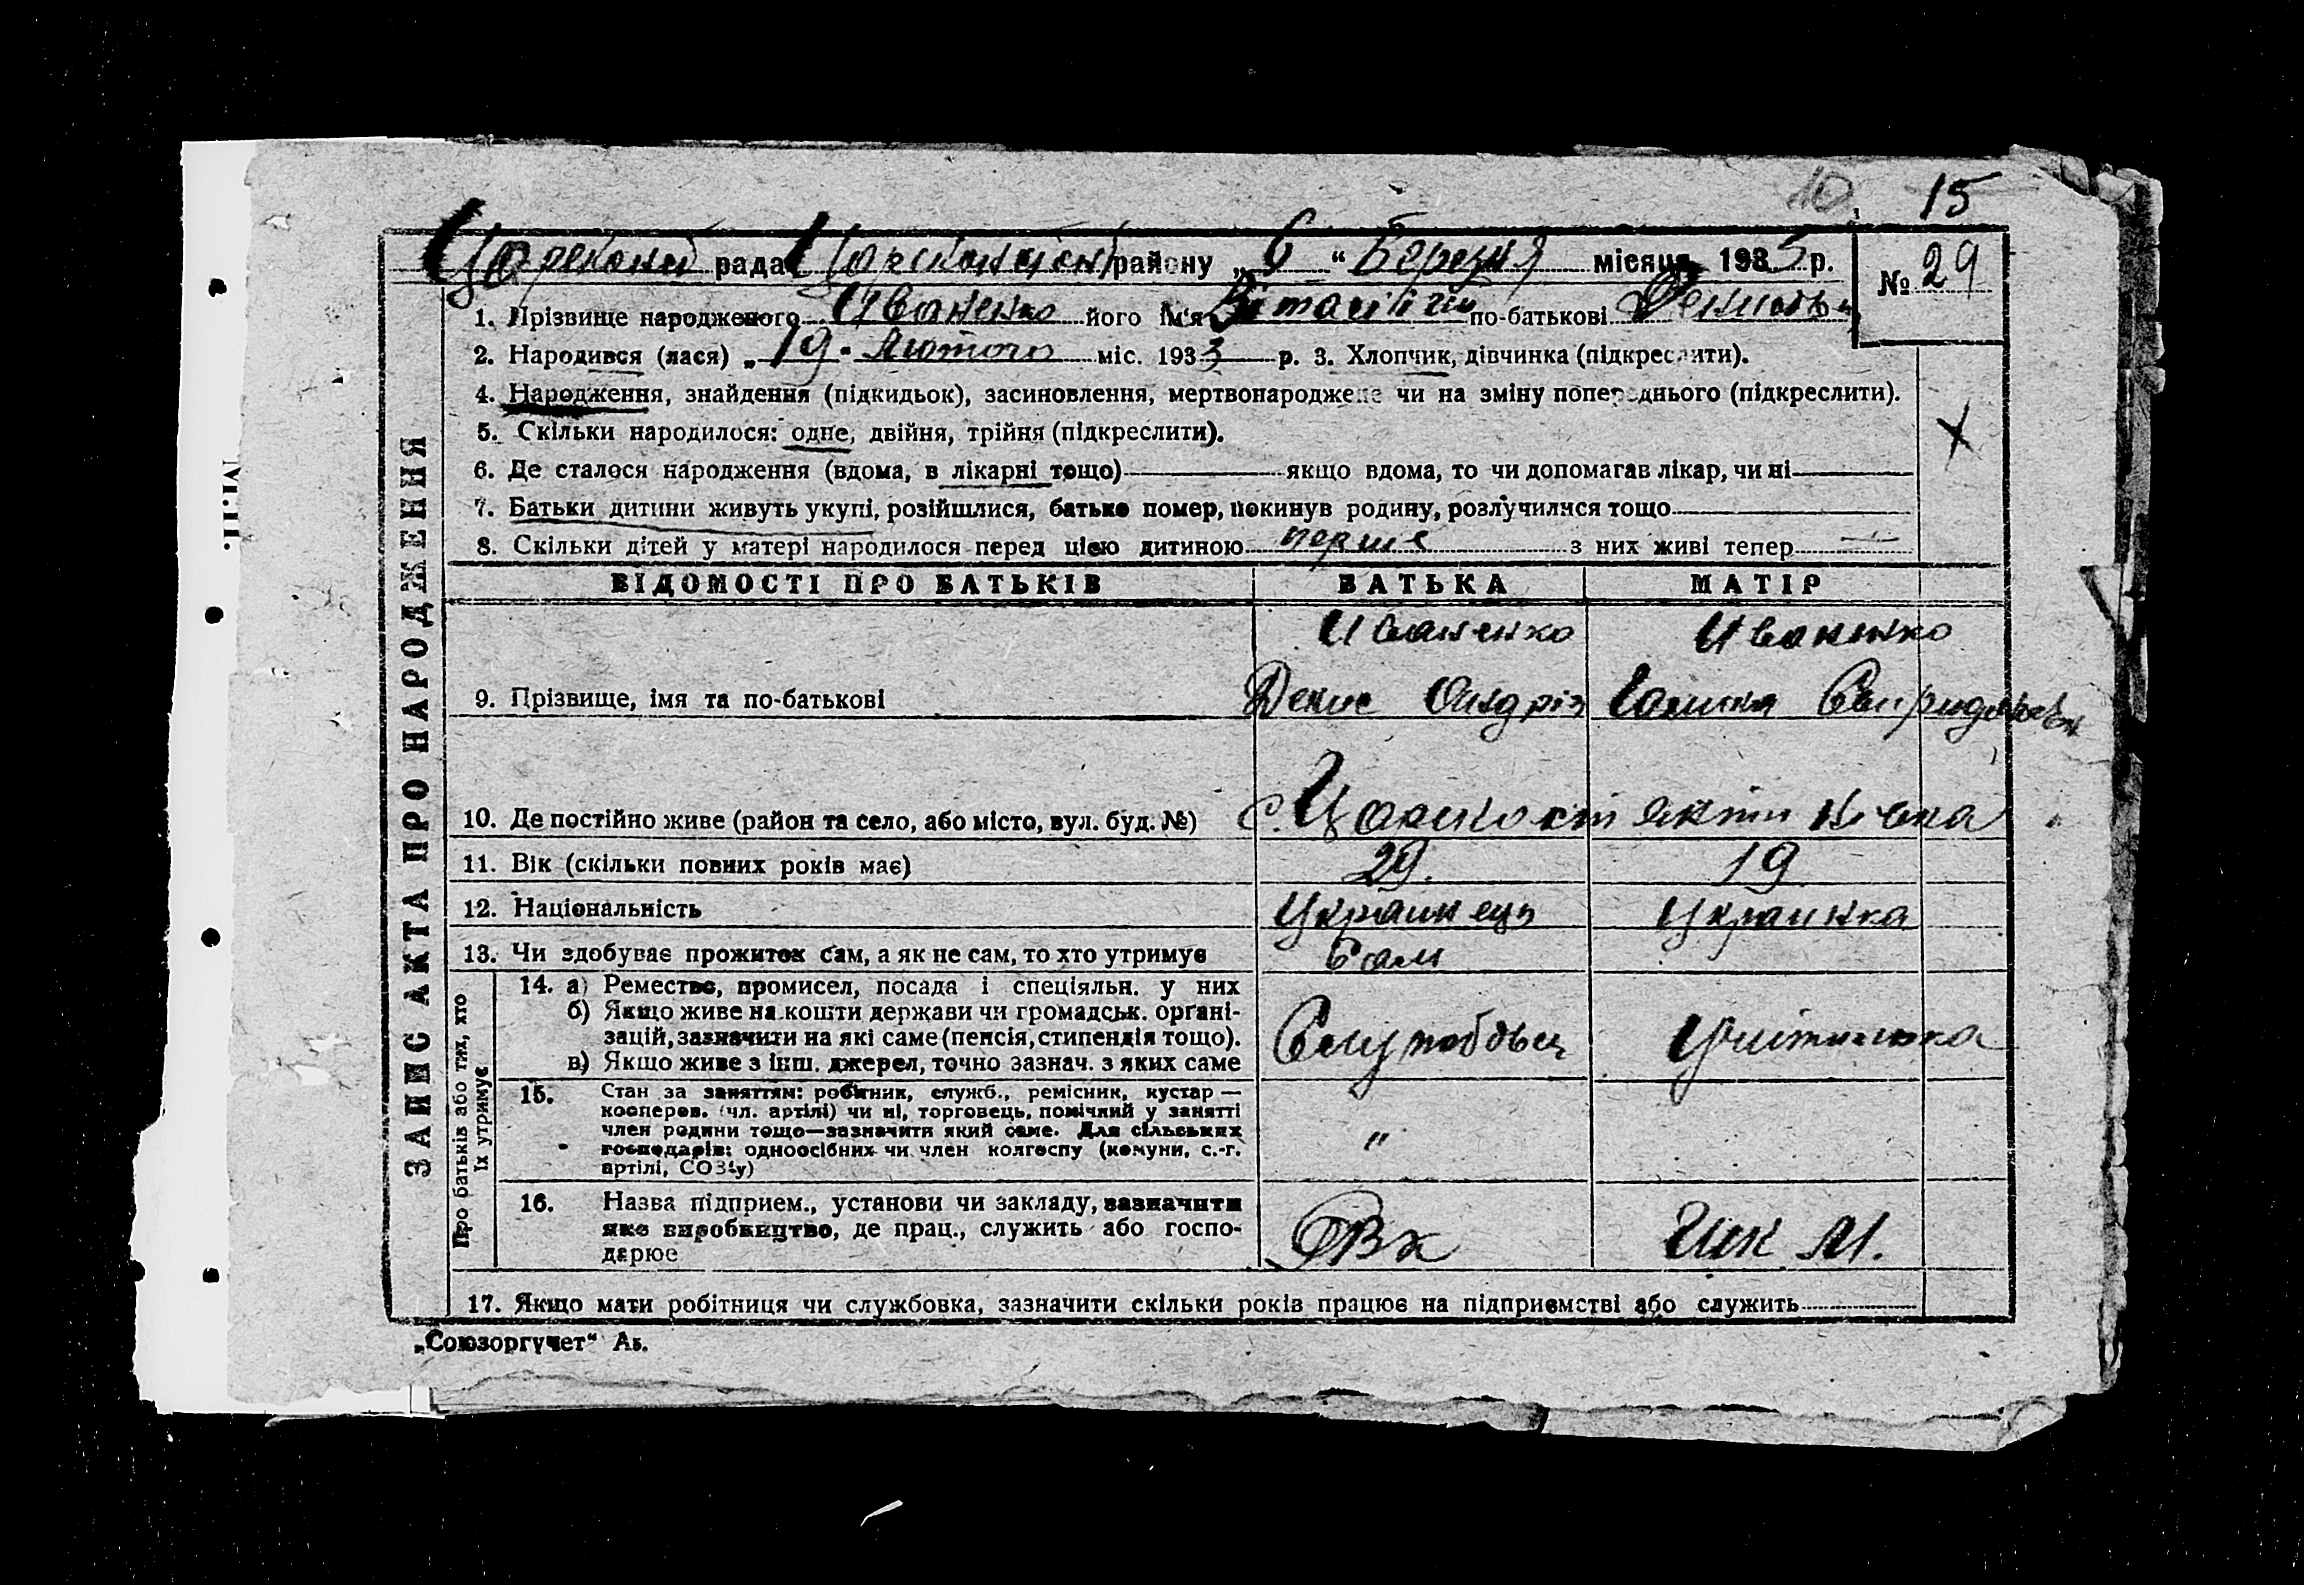 10 15
рада району „6“ Березня місяця 1935 р. № 29
1. Прізвище народженого Иваненко його ім'я Віталій по-батькові
2. Народився (лася) „19“ Лютого міс. 1933 р. 3. Хлопчик, дівчинка (підкреслити).
4. Народження, знайдення (підкидьок), засиновлення, мертвонароджене чи на зміну попереднього (підкреслити).
5. Скільки народилося: одне, двійня, трійня (підкреслити).
6. Де сталося народження (вдома, в лікарні тощо) якщо вдома, то чи допомагав лікар, чи ні
7. Батьки дитини живуть укупі, розійшлися, батько помер, покинув родину, розлучилися тощо
8. Скільки дітей у матері народилося перед цією дитиною перше з них живі тепер —
ЗАПИС АКТА ПРО НАРОДЖЕННЯ
ВІДОМОСТІ ПРО БАТЬКІВ БАТЬКА МАТІР
Иваненко Иваненко
9. Прізвище, імя та по-батькові Денис Андрів Галина
10. Де постійно живе (район та село, або місто, вул. буд. №) с.
11. Вік (скільки повних років має) 29. 19
12. Національність Украинець Украинка
13. Чи здобуває прожиток сам, а як не сам, то хто утримує Сам
Про батьків або тих, хто їх утримує
14. а) Ремество, промисел, посада і спеціяльн. у них
б) Якщо живе на кошти держави чи громадськ. органі-
зацій, зазначити на які саме (пенсія, стипендія тощо).
в) Якщо живе з інш. джерел, точно зазнач. з яких саме
Учителька
15. Стан за заняттям: робітник, служб., ремісник, кустар —
кооперов. (чл. артілі) чи ні, торговець, помічний у занятті
член родини тощо—зазначити який саме. Для сільських
господарів: одноосібник чи член колгоспу (комуни, с.-г.
артілі, СОЗ'у)
"
16. Назва підприєм., установи чи закладу, зазначити
яке виробництво, де прац., служить або госпо-
дарює
РВК
17. Якщо мати робітниця чи службовка, зазначити скільки років працює на підприємстві або служить
„Союзоргучет“